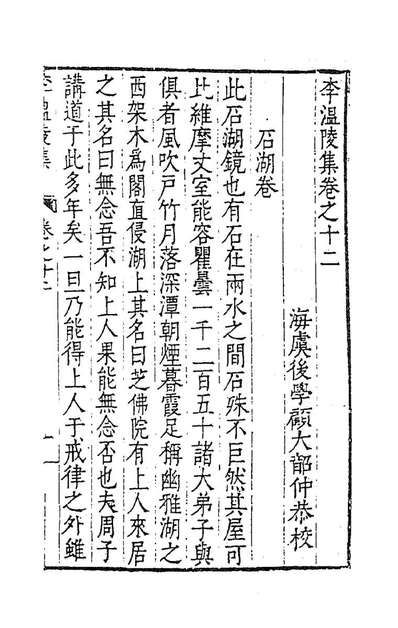 李溫陵集卷之十二
海虞後學顧大韶仲恭校
石湖卷
此石湖鏡也有石在兩水之間石殊不巨然其屋可
比維摩丈室能容瞿曇一千二百五十諸大弟子與
俱者風吹戸竹月落深潭朝煙暮霞足稱幽雅湖之
西架木爲閣直侵湖上其名曰芝佛院有上人來居
之其名曰無念吾不知上人果能無念否也夫周子
講道于此多年矣一旦乃能得上人于戒律之外雖
李溫陵集 卷之十二 一